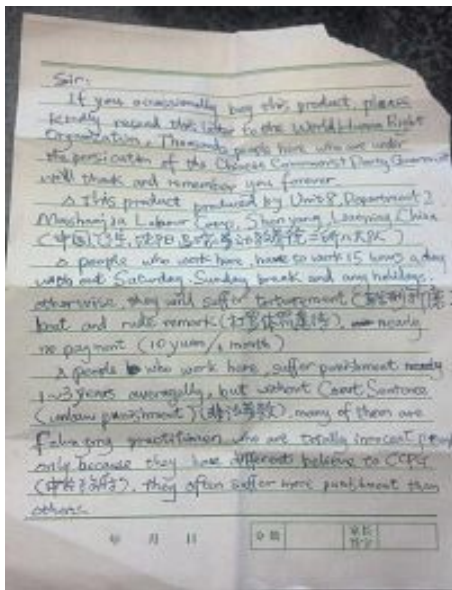 Sir:
If you occassionally buy this product, please
kindly resend this letter to the World Human Right
Organization. Thousands people here who are under
the persicution of the Chinese Communist Party Government
will thank and remember you forever.
This product produced by Unit 8, Department 2
Mashanjia Labour Camp, Shen yang, Liaoning, China
(中国, 辽宁, 沈阳马三家劳动教养院二所八大队)
people who work here, have to work 15 hours a day
with out Saturday, Sunday break and any holidays,
otherwise, they will suffer torturement
beat and rude remark (打骂体罚虐待), nearly
no payment (10 yuan/1 month)
people who work here, suffer punishment nearly
1~3 years averagelly, but without Court Sentence
(unlaw punishment) (非法劳教), many of them are
Falungong practitioner, who are totally innocent people
only because they have different believe to CCPG
they often suffer more punishment than
others.
年 月 日